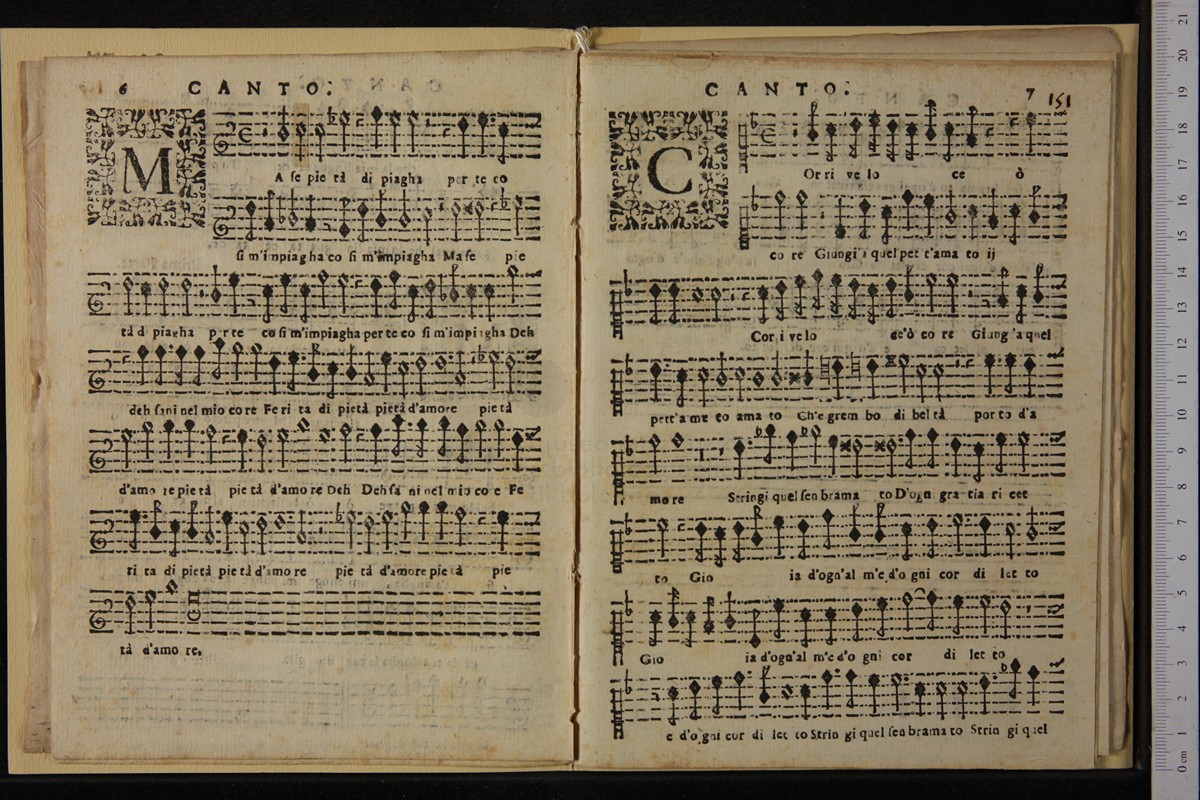 6 CANTO.
M
A se pie tà di piagha per te co
si m'impiagha co si m'impiagha Ma se pie
tà d piagha per te co si m'impiagha per te co si m'impiagha Deh
deh sani nel mio co re Fe ri ta di pietà pietà d'amore pie tà
d'amo re pie tà pie tà d'amo re Deh Deh sa ni nel mio co e Fe
ri ta di pietà pie tà d'amo re pie tà d'amore pie tà pie
tà d'amo re.
CANTO. 7 151
C
Or ri ve lo ce ò
co re Giungi quel pet t'ama to ij
Cor i ve lo ce'ò co re Giung 'a quel
pett'a me to ama to Ch'e grem bo di bel tà por to d'a
mo re Stringi quel sen brama to D'ogn gra tia ri cet
to Gio ia d'ogn'al m'e d'o gni cor di let to
Gio ia d'ogn'al m'e d'o gni cor di let to
e d'o gni cor di let to Strin gi quel sen brama to Strin gi quel
0 cm 1 2 3 4 5 6 7 8 9 10 11 12 13 14 15 16 17 18 19 20 21